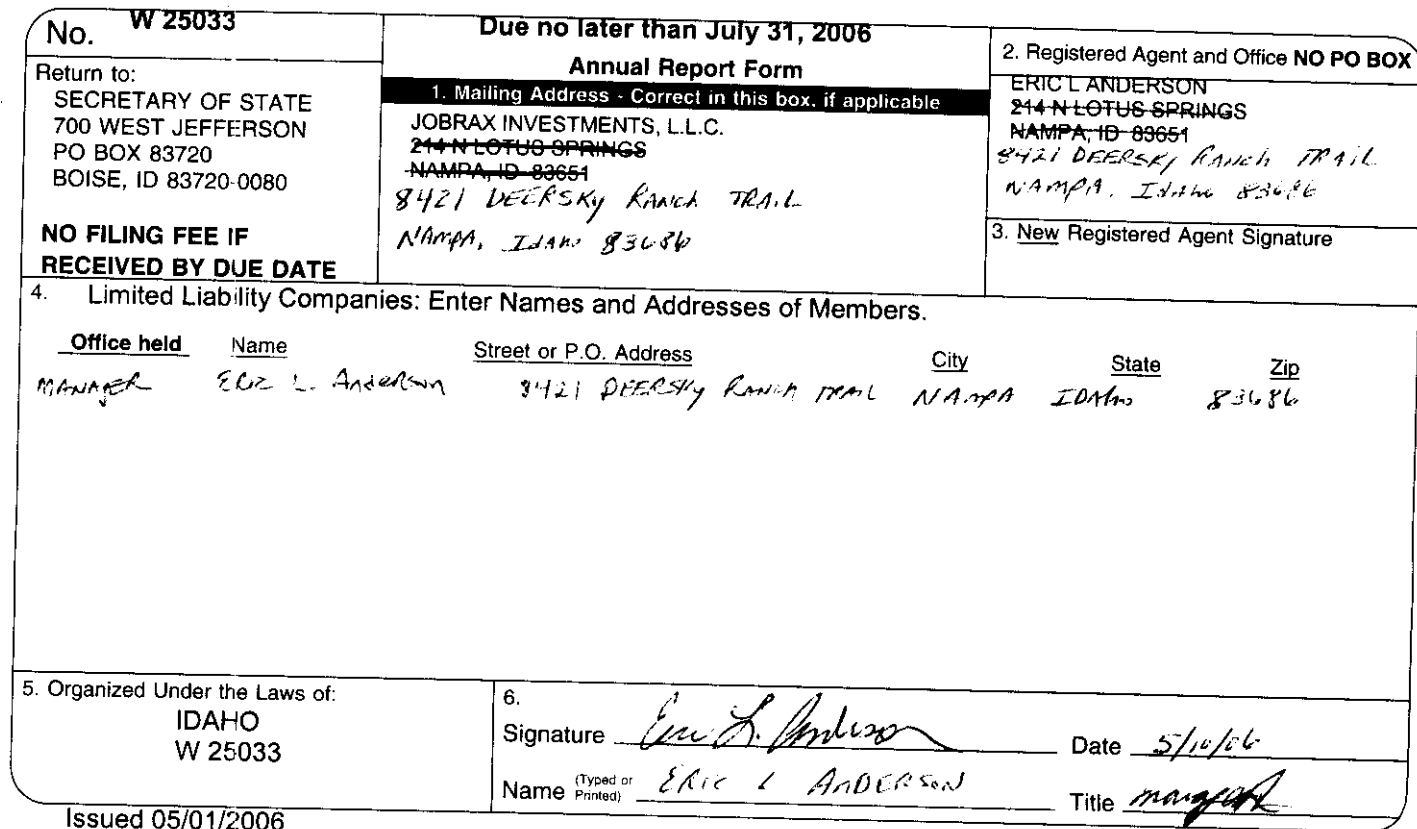 No. W 25033
Return to:
SECRETARY OF STATE
700 WEST JEFFERSON
PO BOX 83720
BOISE, ID 83720-0080
NO FILING FEE IF
RECEIVED BY DUE DATE
Due no later than July 31, 2006
Annual Report Form
1. Mailing Address - Correct in this box, if applicable
JOBRAX INVESTMENTS, L.L.C.
214 N LOTUS SPRINGS
NAMPA, ID 83651
8421 DEERSKY RANCH TRAIL
NAMPA, IDAHO 83686
2. Registered Agent and Office NO PO BOX
ERIC L ANDERSON
214 N LOTUS SPRINGS
NAMPA, ID 83651
8421 DEERSKY RANCH TRAIL
NAMPA, IDAHO 83686
3. New Registered Agent Signature
4. Limited Liability Companies: Enter Names and Addresses of Members.
Office held Name Street or P.O. Address City State Zip
MANAGER ERIC L. Anderson 8421 DEERSKY RANCH TRAIL NAMPA IDAHO 83686
5. Organized Under the Laws of:
IDAHO
W 25033
6.
Signature Eric L. Anderson Date 5/10/06
Name (Typed or Printed) ERIC L ANDERSON Title
Issued 05/01/2006